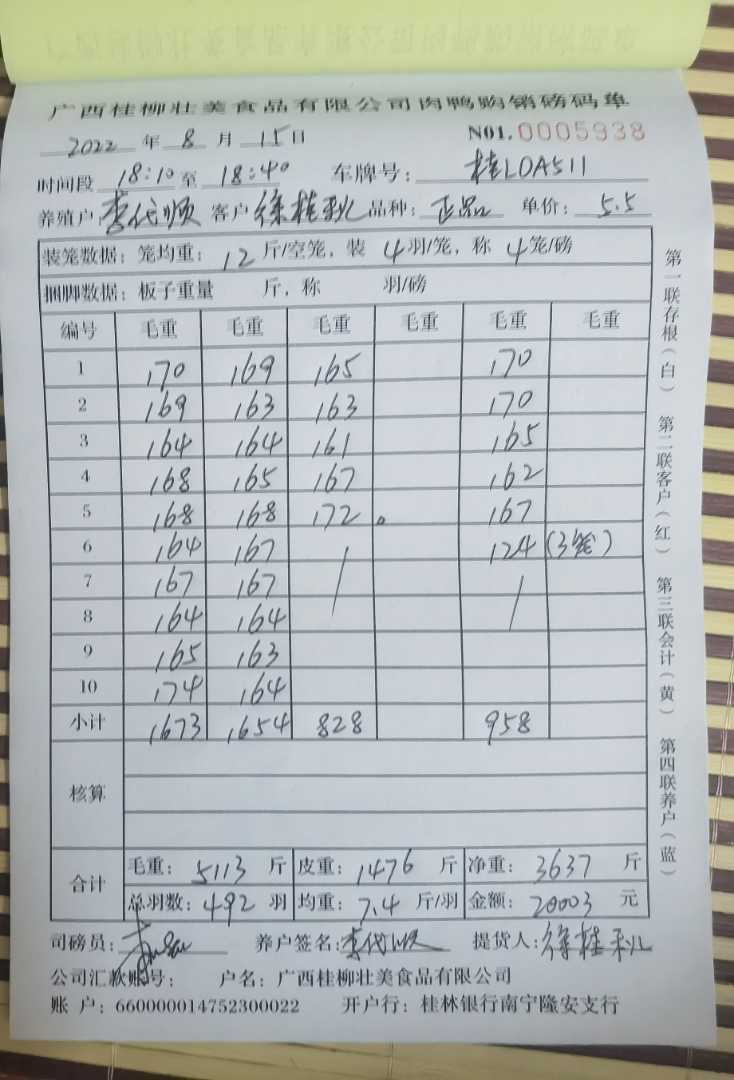 广西桂柳壮美食品有限公司肉鸭购销磅码单
2022 年 8 月 15 日 N01. 0005938
时间段 18:10 至 18:40 车牌号: 桂LDA511
养殖户: 李代顺 客户 徐桂秋 品种: 正品 单价: 5.5
装笼数据: 笼均重: 12 斤/空笼, 装 4 羽/笼, 称 4 笼/磅
捆脚数据: 板子重量 斤, 称 羽/磅
编号 毛重 毛重 毛重 毛重 毛重 毛重
1 170 169 165 170
2 169 163 163 170
3 164 164 161 165
4 168 165 167 162
5 168 168 172 167
6 164 167 124 (3笼)
7 167 167
8 164 164
9 165 163
10 174 164
小计 1673 1654 828 958
核算
合计
毛重: 5113 斤 皮重: 1476 斤 净重: 3637 斤
总羽数: 492 羽 均重: 7.4 斤/羽 金额: 20003 元
司磅员: 养户签名: 李代顺 提货人: 徐桂秋
公司汇款账号: 户名: 广西桂柳壮美食品有限公司
账 户: 660000014752300022 开户行: 桂林银行南宁隆安支行
第一联存根(白) 第二联客户(红) 第三联会计(黄) 第四联养户(蓝)